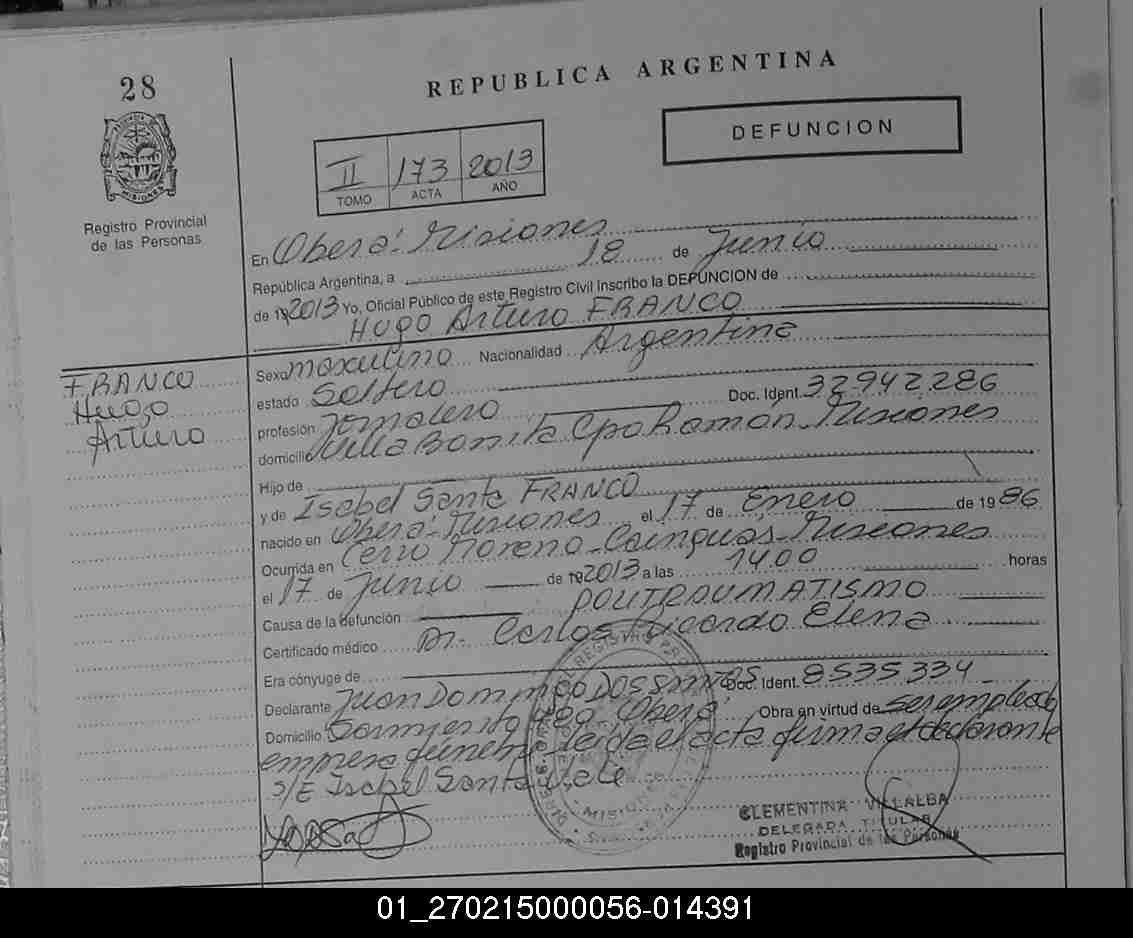 28
REPUBLICA ARGENTINA
DEFUNCION
II 173 2013
TOMO ACTA AÑO
MISIONES
Registro Provincial
de las Personas
En Oberá - Misiones
República Argentina, a 18 de Junio
de 192013 Yo, Oficial Público de este Registro Civil Inscribo la DEFUNCION de
Hugo Arturo FRANCO
FRANCO
Hugo
Arturo
Sexo masculino Nacionalidad Argentina
estado Soltero Doc. Ident. 32942286
profesión Jornalero
domicilio Villa Bonita Cpo Ramon Misiones
Hijo de
y de Isabel Santa FRANCO
nacido en Oberá - Misiones el 17 de Enero de 1986
Ocurrida en Cerro Moreno - Cainguas - Misiones
el 17 de Junio de 192013 a las 14.00 horas
Causa de la defunción POLITRAUMATISMO
Certificado médico Dr. Carlos Ricardo Elena
Era cónyuge de
Declarante Juan Domingo DOS SANTOS Doc. Ident. 8535334
Domicilio Sarmiento Oberá Obra en virtud de ser empleado
empresa leida el acta firma el declarante
S/E Isabel Santa Vale
MISIONES
CLEMENTINA VILLALBA
DELEGADA TITULAR
Registro Provincial de las Personas
01_270215000056-014391